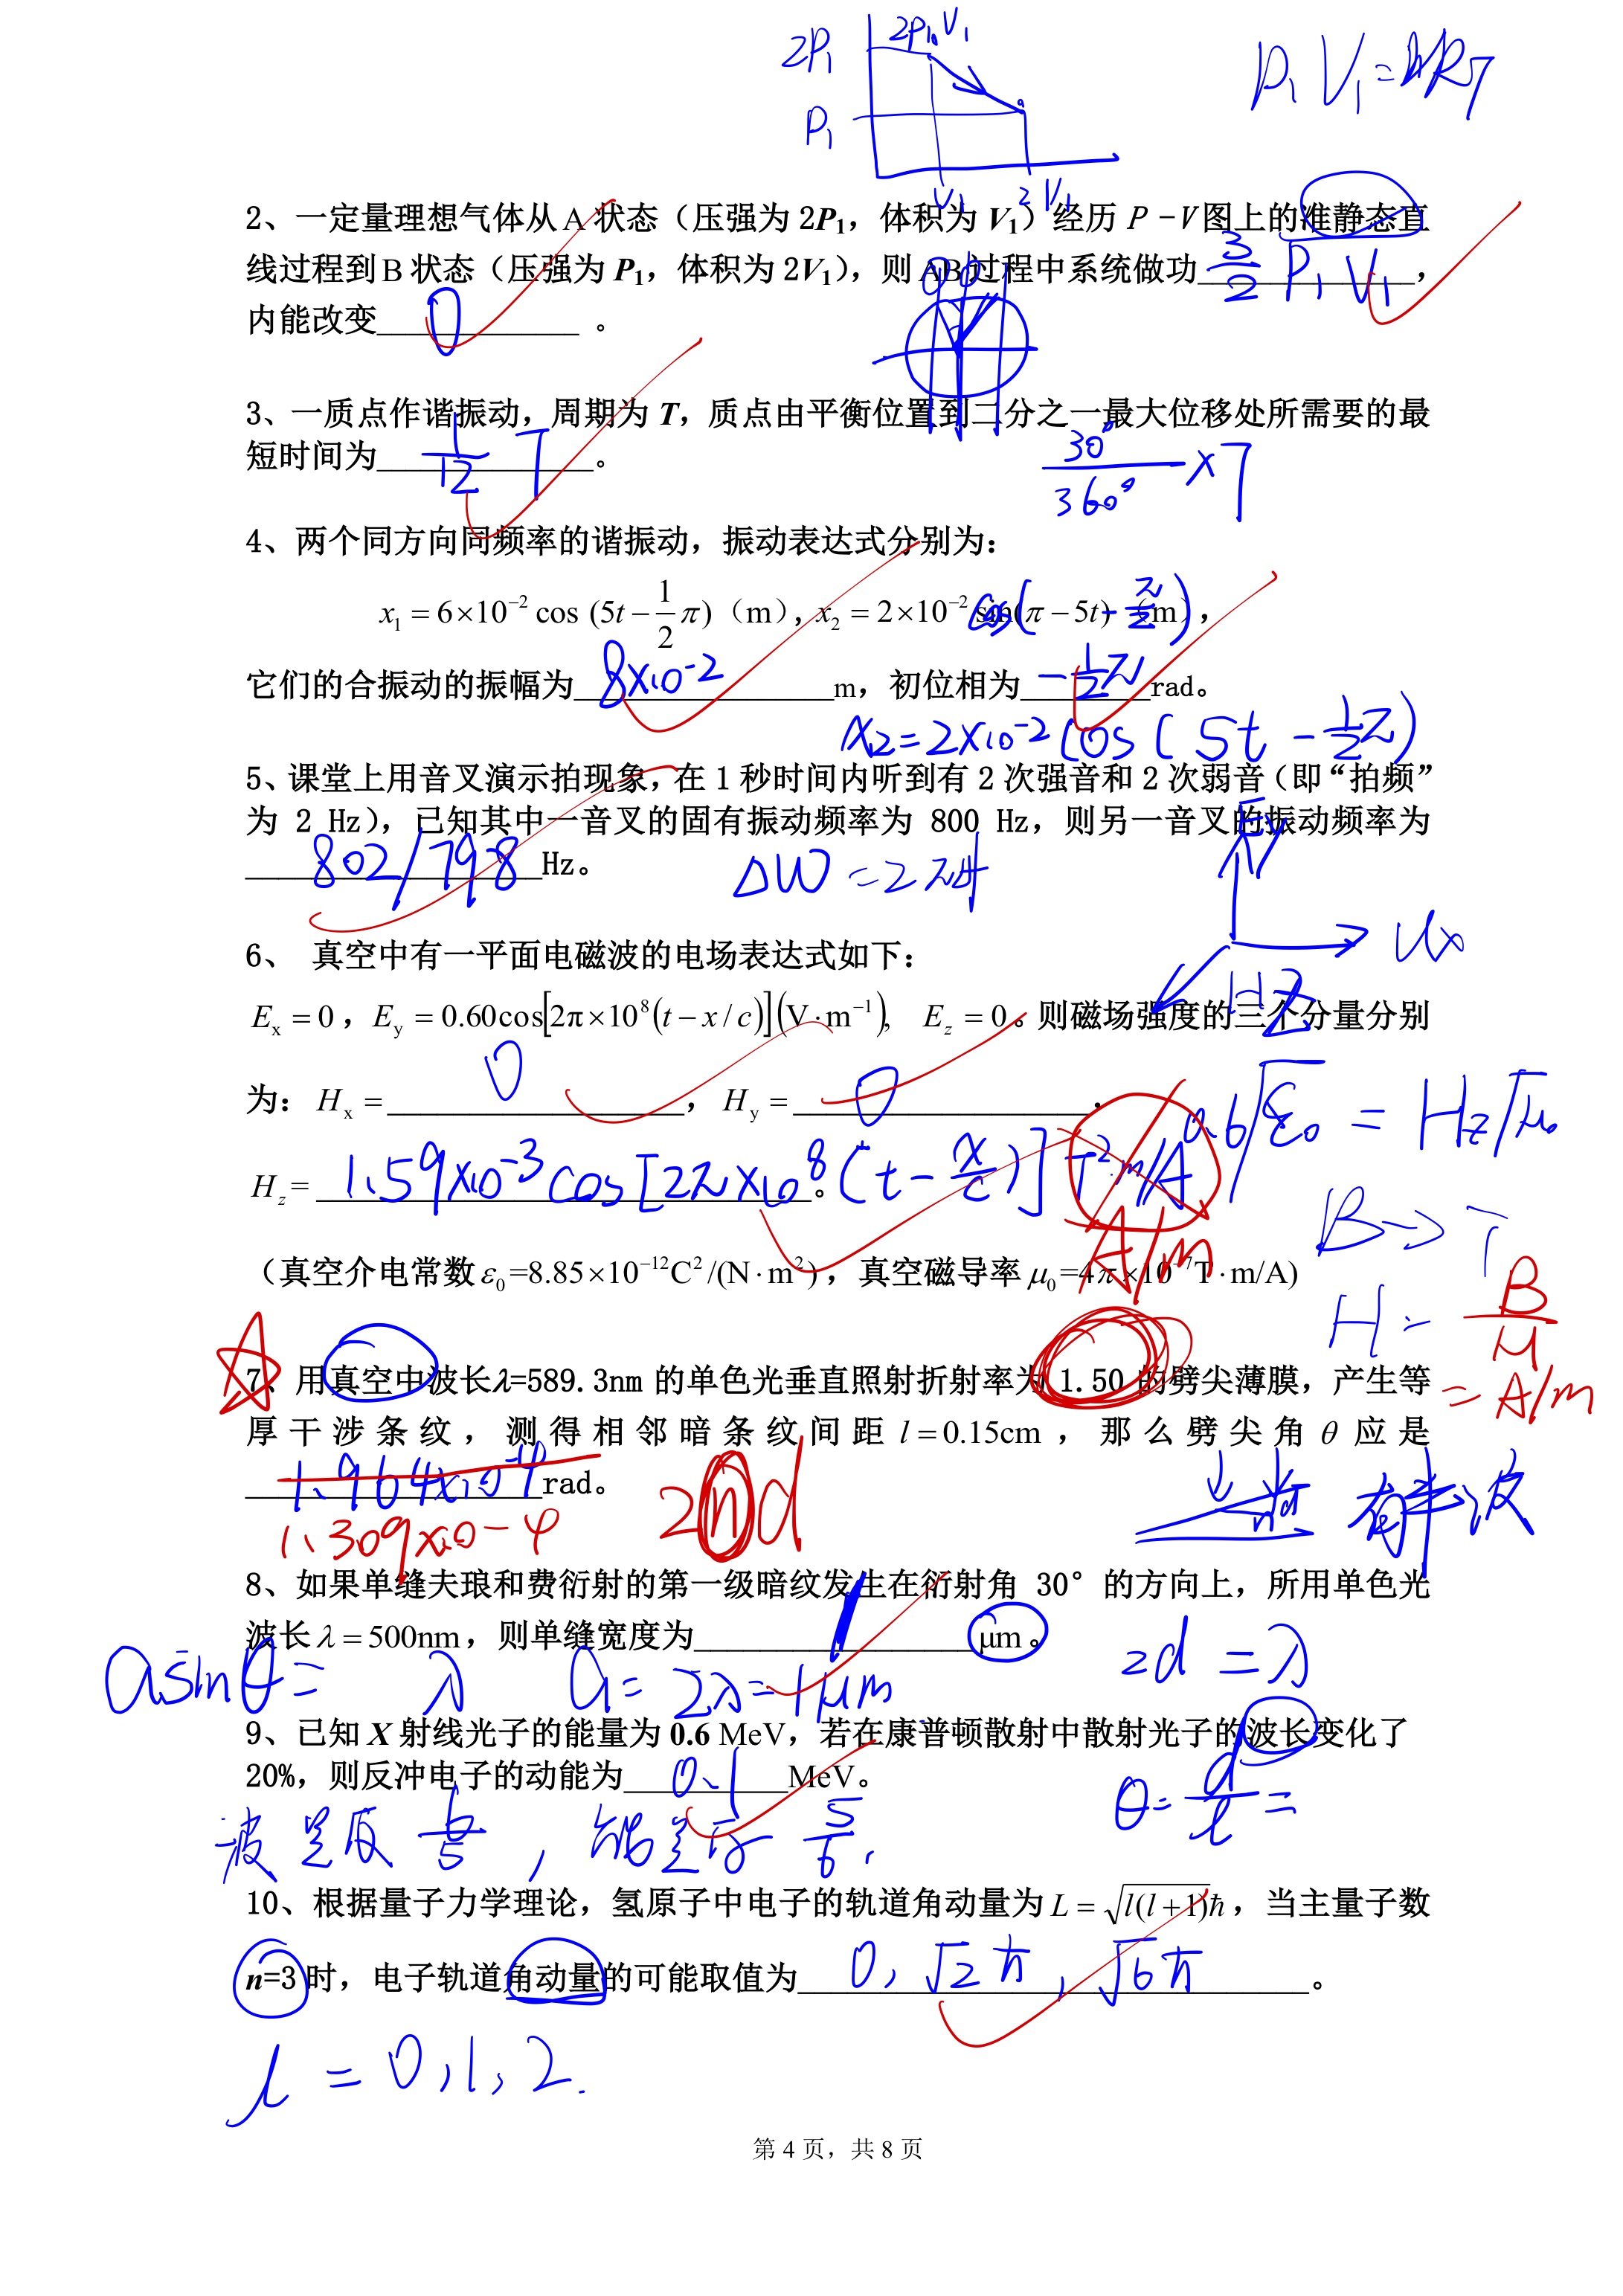 2P₁
2P₁,V₁
P₁
V₁ 2V₁
P₁V₁=nRT
2、一定量理想气体从A状态（压强为2P₁，体积为V₁）经历P－V图上的准静态直
线过程到B状态（压强为P₁，体积为2V₁），则AB过程中系统做功 3/2 P₁V₁，
内能改变 0 。
3、一质点作谐振动，周期为T，质点由平衡位置到二分之一最大位移处所需要的最
短时间为 1/12 T 。
30°/360° ×T
4、两个同方向同频率的谐振动，振动表达式分别为：
x₁ = 6×10⁻² cos (5t − 1/2 π)（m），x₂ = 2×10⁻² sin(π − 5t)（m），
cos( − π/2)
它们的合振动的振幅为 8×10⁻² m，初位相为 −1/2π rad。
x₂=2×10⁻²cos(5t −1/2π)
5、课堂上用音叉演示拍现象，在1秒时间内听到有2次强音和2次弱音（即“拍频”
为 2 Hz），已知其中一音叉的固有振动频率为 800 Hz，则另一音叉的振动频率为
802/798 Hz。
ΔW =2πΔf
Ey
Ux
HZ
6、 真空中有一平面电磁波的电场表达式如下：
Eₓ = 0，E_y = 0.60cos[2π×10⁸(t − x/c)](V·m⁻¹), E_z = 0。则磁场强度的三个分量分别
为：Hₓ = 0 ，H_y = 0 ，
0.6√ε₀ = Hz√μ₀
H_z= 1.59×10⁻³cos[2π×10⁸(t−x/c)] T²·m/A 。
A/m
B→T
（真空介电常数ε₀=8.85×10⁻¹²C²/(N·m²)，真空磁导率μ₀=4π×10⁻⁷T·m/A)
H= B/μ
=A/m
7、用真空中波长λ=589.3nm的单色光垂直照射折射率为1.50的劈尖薄膜，产生等
厚干涉条纹，测得相邻暗条纹间距l = 0.15cm，那么劈尖角θ应是
1.964×10⁻⁴ rad。
1.309×10−4
2nd
nd
有半波
8、如果单缝夫琅和费衍射的第一级暗纹发生在衍射角 30°的方向上，所用单色光
波长λ = 500nm，则单缝宽度为 1 μm。
asinθ= λ a=2λ=1μm
2d =λ
9、已知X射线光子的能量为0.6 MeV，若在康普顿散射中散射光子的波长变化了
20%，则反冲电子的动能为 0.1 MeV。
θ= d/l =
波是原 6/5 ，能是原 5/6 .
10、根据量子力学理论，氢原子中电子的轨道角动量为L = √l(l+1)ħ，当主量子数
n=3时，电子轨道角动量的可能取值为 0, √2ħ , √6ħ 。
l = 0,1,2.
第 4 页，共 8 页